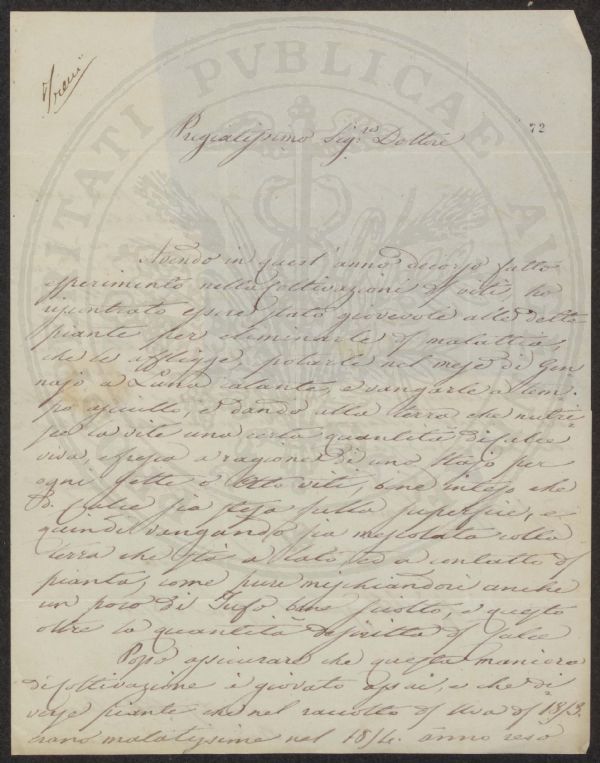 72
Pregiatissimo Sig.re Dottore
Avendo in quest'anno decorso fatto
esperimento nella coltivazione di viti ho
riscontrato essere stato giovevole alle dette
piante per eliminarle di malattia,
che le affligge, potarle nel mese di Gen
najo a Luna calante, e vangarle a tem
po asciutto, e dando alla terra che nutri
sce la vite una certa quantità di calce
viva, e fresca a ragione di uno stajo per
ogni sette o otto viti, bene inteso che
d. Calce sia stesa sulla superficie, e
quindi vangando sia mescolata colla
terra che sta a lato ed a contatto di
pianta, come pure mischiandovi anche
un poco di Tufo bene sciolto, e questo
oltre la quantità descritta di calce
Posso assicurare che questa maniera
di coltivazione è giovato assai, e che di
verse piante che nel raccolto di Uva di 1853.
erano malatissime nel 1854. anno reso